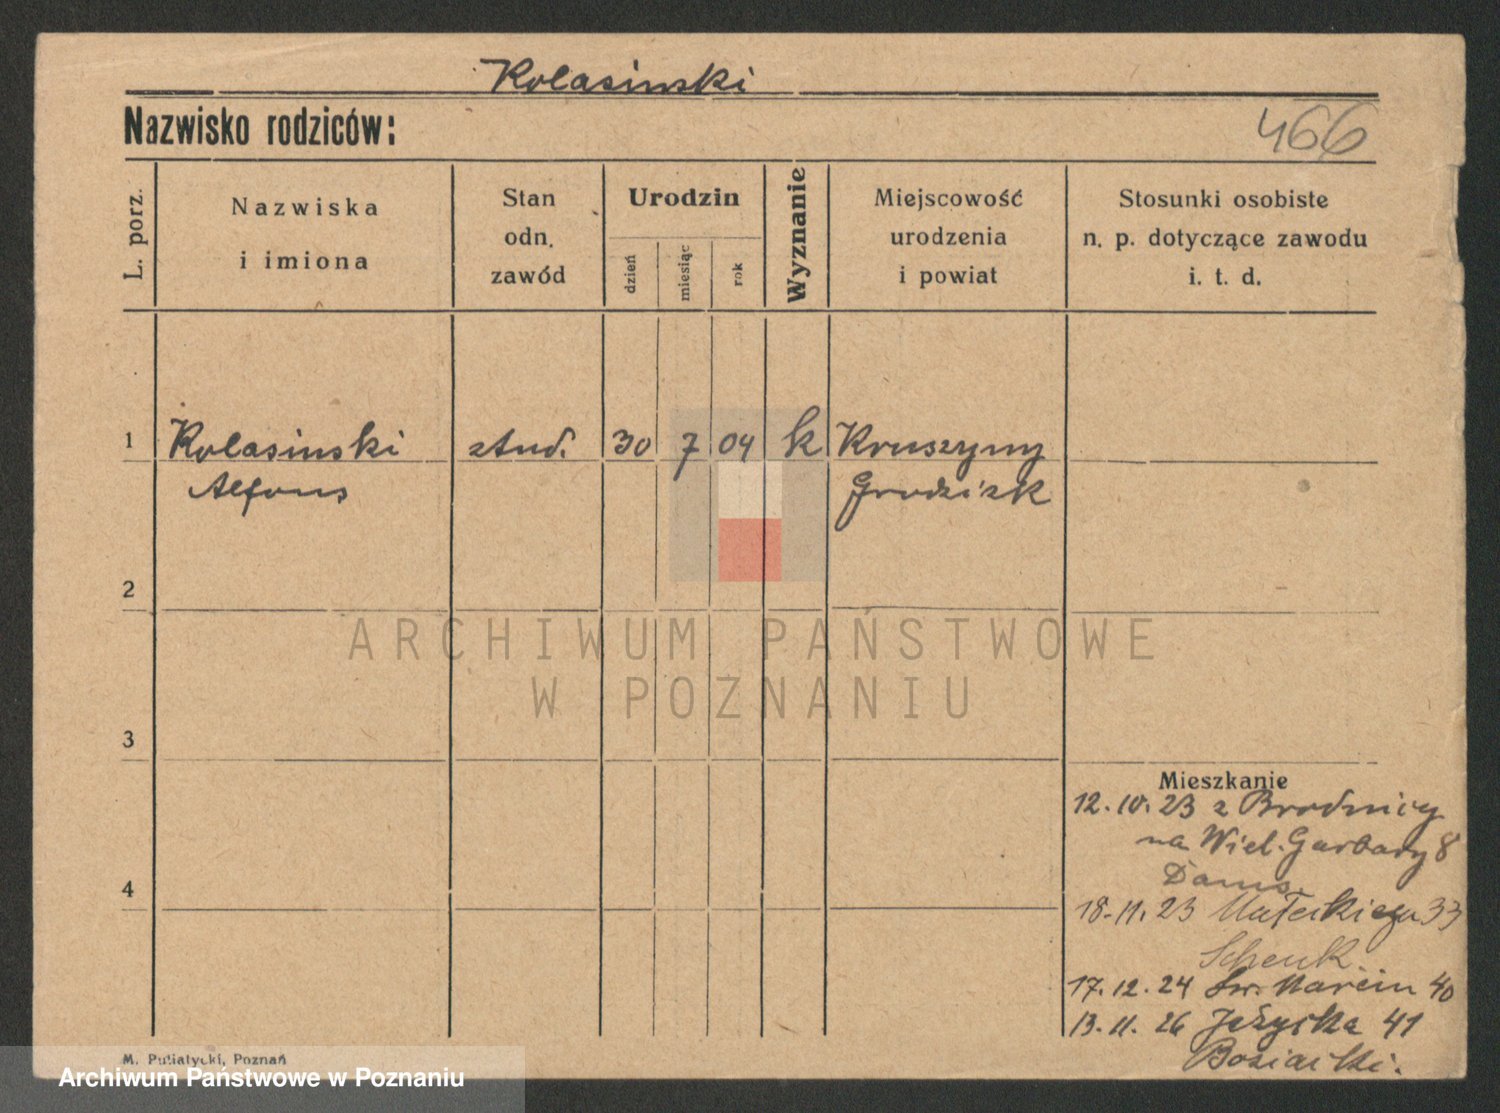 Kolasinski
Nazwisko rodziców:
466
L. porz.
Nazwiska
i imiona
Stan
odn.
zawód
Urodzin
dzień
miesiąc
rok
Wyznanie
Miejscowość
urodzenia
i powiat
Stosunki osobiste
n. p. dotyczące zawodu
i. t. d.
1 Kolasinski stud. 30 7 04 k Kruszyny
Alfons Grodzisk
2
ARCHIWUM PAŃSTWOWE
W POZNANIU
3
Mieszkanie
12.10.23 z Brodnicy
na Wiel. Garbary 8
4
18.11.23 Małeckiego 33
Schenk
17.12.24 Św. Marcin 40
13.11.26 Jeżycka 41
M. Putiatycki, Poznań
Archiwum Państwowe w Poznaniu